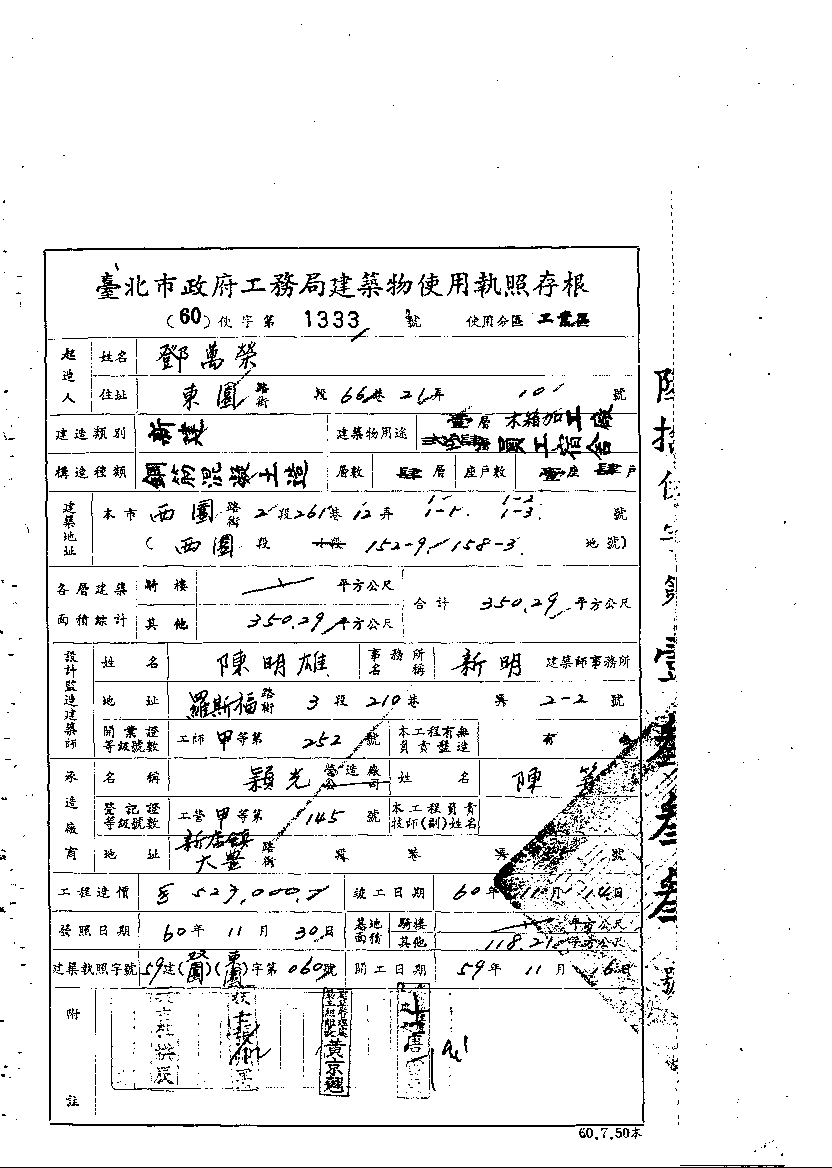 臺北市政府工務局建築物使用執照存根
(60)使字第 1333 號 使用分區 工業區
起造人 姓名 鄧萬榮
住址 東園 路街 段 66巷 26弄 10 號
建造類別 新建 建築物用途 壹層木箱加工廠 員工宿舍
構造種類 鋼筋混凝土造 層數 肆層 座戶數 壹座 肆戶
建築地址 本市 西園 路街 2段261巷12弄 1-1. 1-3. 號
(西園 段 152-9/158-3 地號)
各層建築面積綜計 騎樓 平方公尺 合計 350.29 平方公尺
其他 350.29 平方公尺
設計監造建築師 姓名 陳明雄 事務所名稱 新明 建築師事務所
地址 羅斯福 路街 3段210巷 弄 2-2 號
開業證等級號數 工師甲等第 252 號 本工程有無負責監造 有
承造廠商 名稱 穎光 營造廠公司 姓名 陳
登記證等級號數 工營甲等第 145 號 本工程負責技師(副)姓名
地址 新店鎮大豐 路街 段 巷 弄 號
工程造價 523,000. 竣工日期 60年11月14日
發照日期 60年11月30日 基地面積 騎樓 平方公尺
其他 118.21 平方公尺
建築執照字號 59建( 園)(東園)字第060號 開工日期 59年11月16日
附註
黃京魁
60.7.50本
陸拾使字第壹叁叁叁號